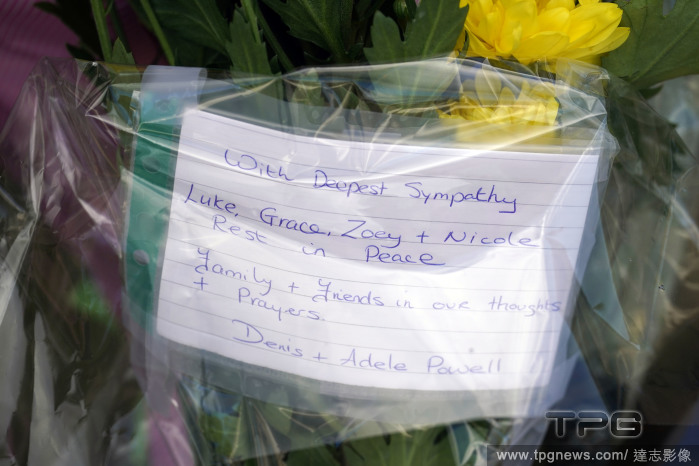 With Deepest Sympathy
Luke, Grace, Zoey + Nicole
Rest in Peace
Family + Friends in our thoughts
+ Prayers.
Denis + Adele Powell
TPG
www.tpgnews.com/ 達志影像